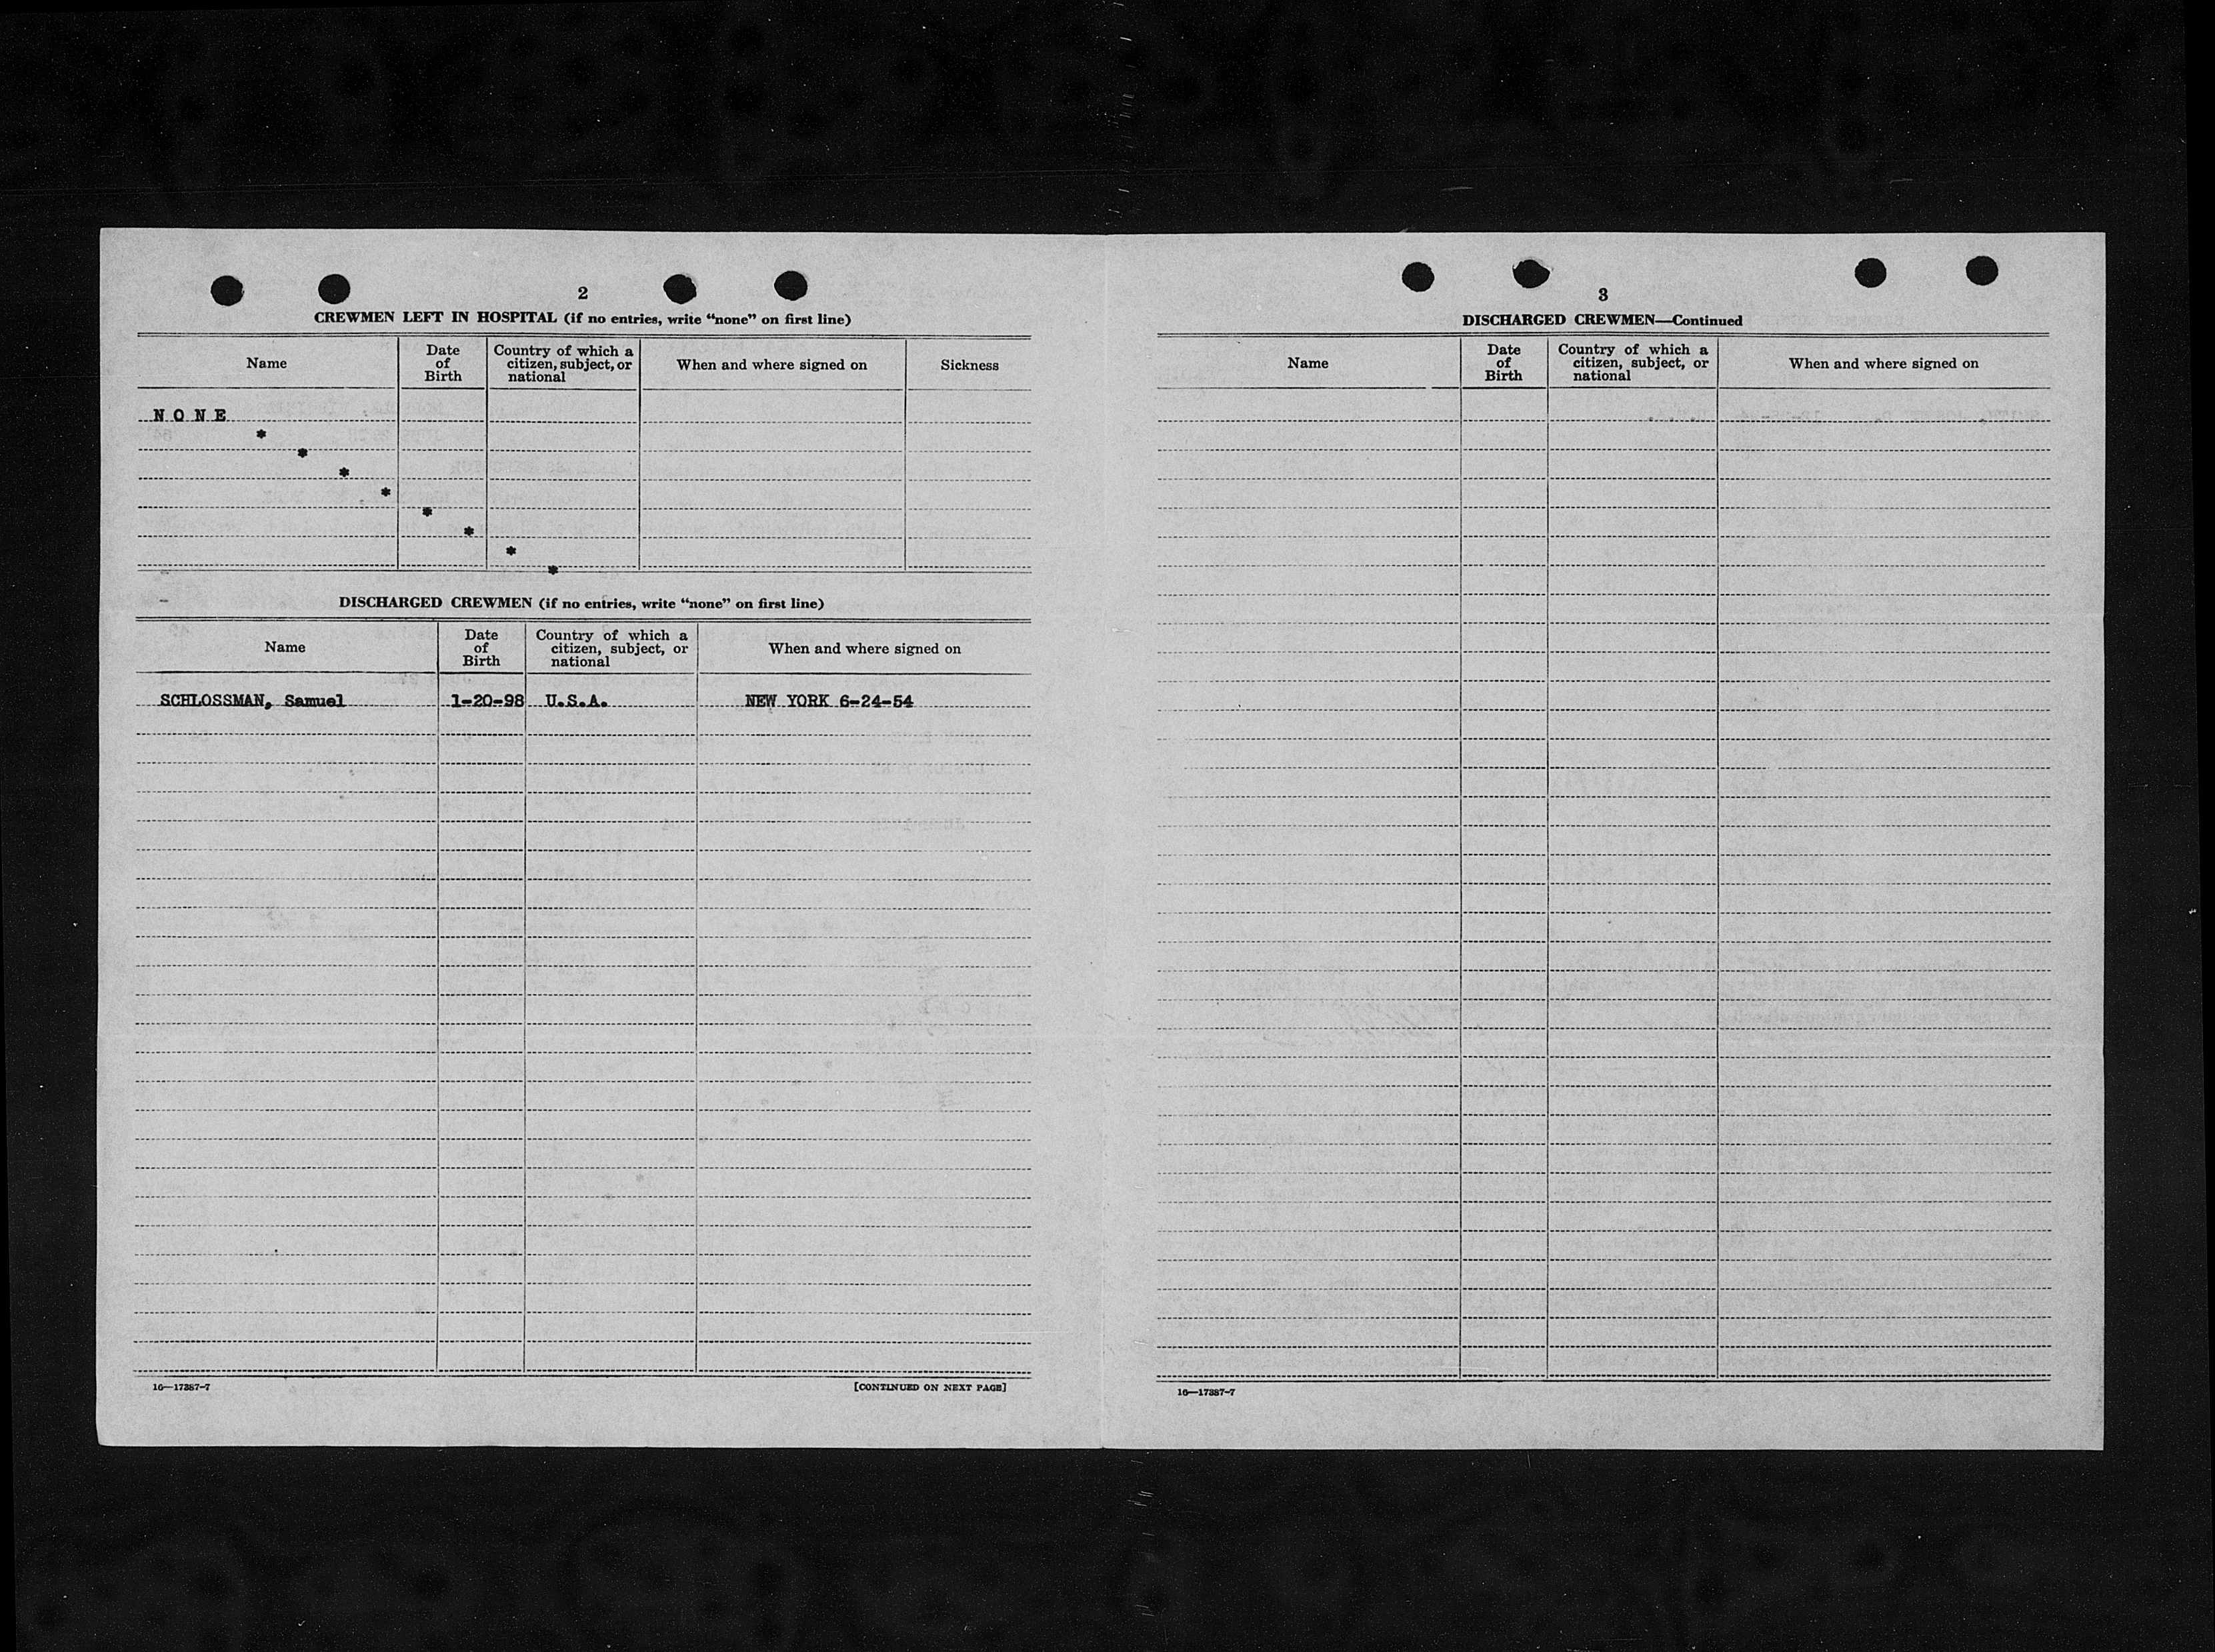 2
CREWMEN LEFT IN HOSPITAL (if no entries, write "none" on first line)
Name
Date of Birth
Country of which a citizen, subject, or national
When and where signed on
Sickness
N O N E
*
*
*
*
*
*
*
*
DISCHARGED CREWMEN (if no entries, write "none" on first line)
Name
Date of Birth
Country of which a citizen, subject, or national
When and where signed on
SCHLOSSMAN, Samuel 1-20-98 U.S.A. NEW YORK 6-24-54
16—17387-7
[CONTINUED ON NEXT PAGE]
3
DISCHARGED CREWMEN—Continued
Name
Date of Birth
Country of which a citizen, subject, or national
When and where signed on
16—17387-7